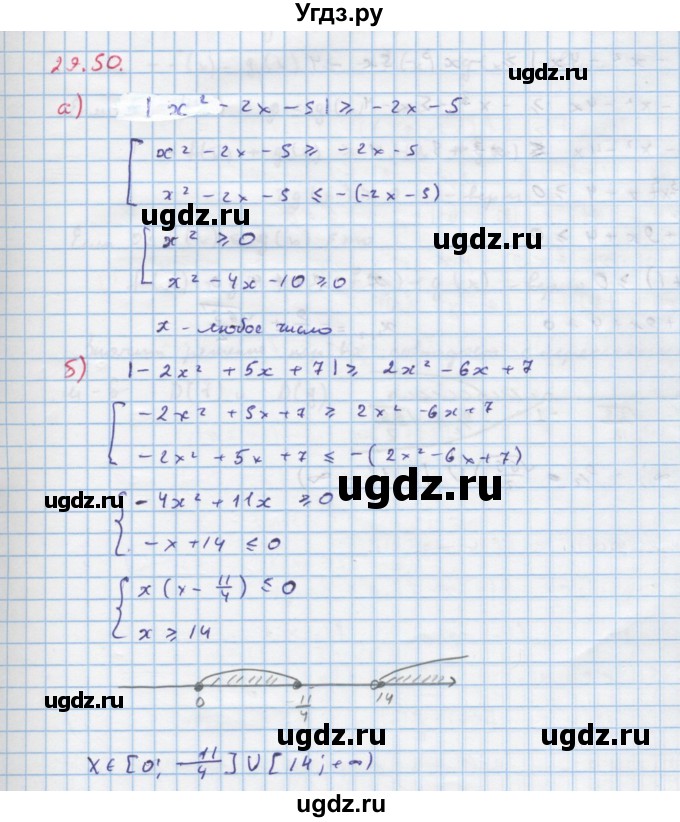 Угдз.ру
29.50.
а) |x² - 2x - 5| ≥ -2x - 5
[ x² - 2x - 5 ≥ -2x - 5
x² - 2x - 5 ≤ -(-2x - 5)
ugdz.ru
ugdz.ru
[ x² ≥ 0
x² - 4x - 10 ≥ 0
x - любое число
б) |-2x² + 5x + 7| ≥ 2x² - 6x + 7
[ -2x² + 5x + 7 ≥ 2x² - 6x + 7
-2x² + 5x + 7 ≤ -(2x² - 6x + 7)
ugdz.ru
ugdz.ru
{ -4x² + 11x ≥ 0
-x + 14 ≤ 0
{ x(x - 11/4) ≤ 0
x ≥ 14
ugdz.ru
ugdz.ru
0 11/4 14
ugdz.ru
ugdz.ru
x ∈ [0; -11/4] ∪ [14; +∞)
ugdz.ru